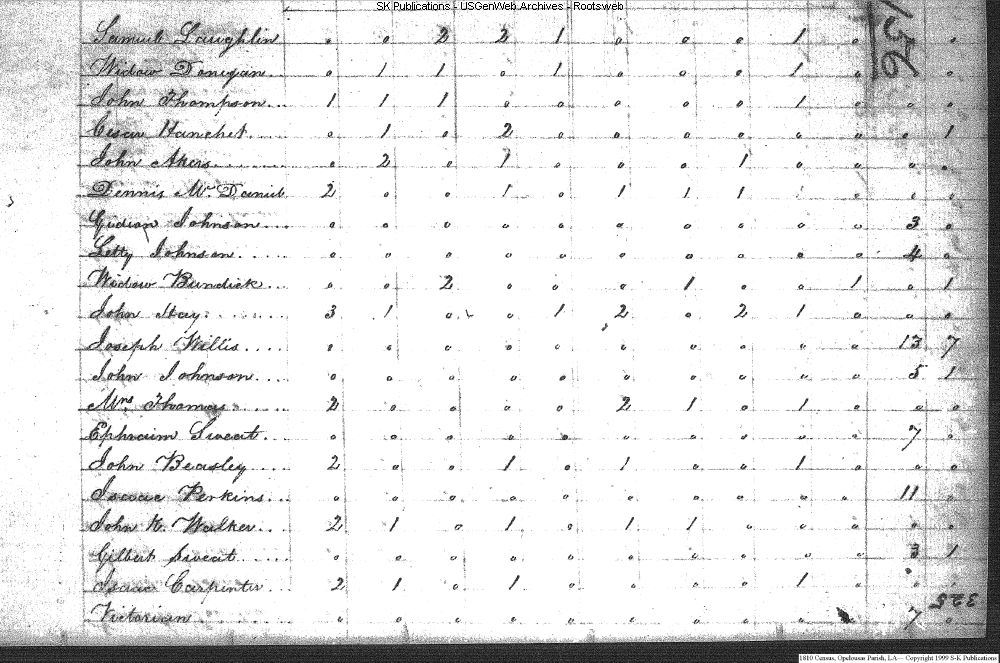 SK Publications - USGenWeb Archives - Rootsweb
156
Samuel Laughlin 0 0 2 2 1 0 0 0 1 0 0
Widow Donegan... 0 1 1 0 1 0 0 0 1 0 0
John Thompson... 1 1 1 0 0 0 0 0 1 0 0 0
Cesar Hanchet.... 0 1 0 2 0 0 0 0 0 0 0 1
John Akers......... 0 2 0 1 0 0 0 1 0 0 0 0
Dennis Mc Daniel 2 0 0 1 0 1 1 1 0 0 0
Gidion Johnson.... 0 0 0 0 0 0 0 0 0 0 3 0
Letty Johnson..... 0 0 0 0 0 0 0 0 0 0 4 0
Widow Bundick.... 0 0 2 0 0 0 1 0 0 1 0 1
John Hay......... 3 1 0 0 1 2 0 2 1 0 0 0
Joseph Willis.... 0 0 0 0 0 0 0 0 0 0 13 7
John Johnson.... 0 0 0 0 0 0 0 0 0 0 5 1
Mrs Thomas...... 2 0 0 0 0 2 1 0 1 0 0 0
Ephraim Sweat.... 0 0 0 0 0 0 0 0 0 0 7 0
John Beasley..... 2 0 0 1 0 1 0 0 1 0 0 0
Isaac Perkins... 0 0 0 0 0 0 0 0 0 0 11 0
John K. Walker... 2 1 0 1 0 1 1 0 0 0 0 0
Gilbert Sweat..... 0 0 0 0 0 0 0 0 0 0 3 1
Isaac Carpenter 2 1 0 1 0 0 0 0 1 0 0 0
325
Victorian........ 0 0 0 0 0 0 0 0 0 7 0
1810 Census, Opelousas Parish, LA -- Copyright 1999 S-K Publications